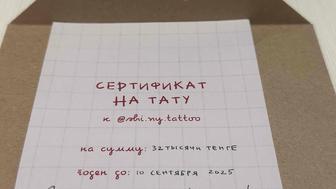 СЕРТИФИКАТ
НА ТАТУ
к @abi.ny.tattoo
на сумму: 32 тысячи тенге
годен до: 10 сентября 2025